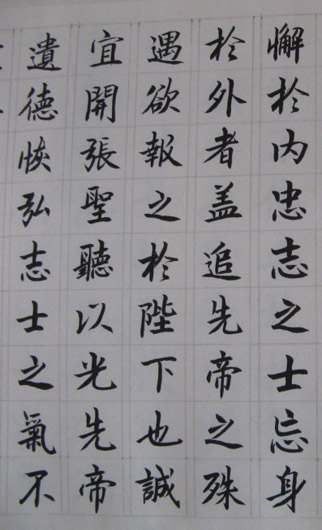 懈於内忠志之士忘身
於外者盖追先帝之殊
遇欲報之於陛下也誠
宜開張聖聽以光先帝
遺德恢弘志士之氣不